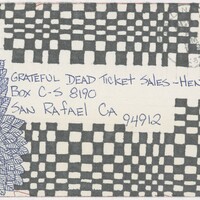 GRATEFUL DEAD TICKET SALES - HEN
BOX C-S 8190
SAN RAFAEL CA
94912